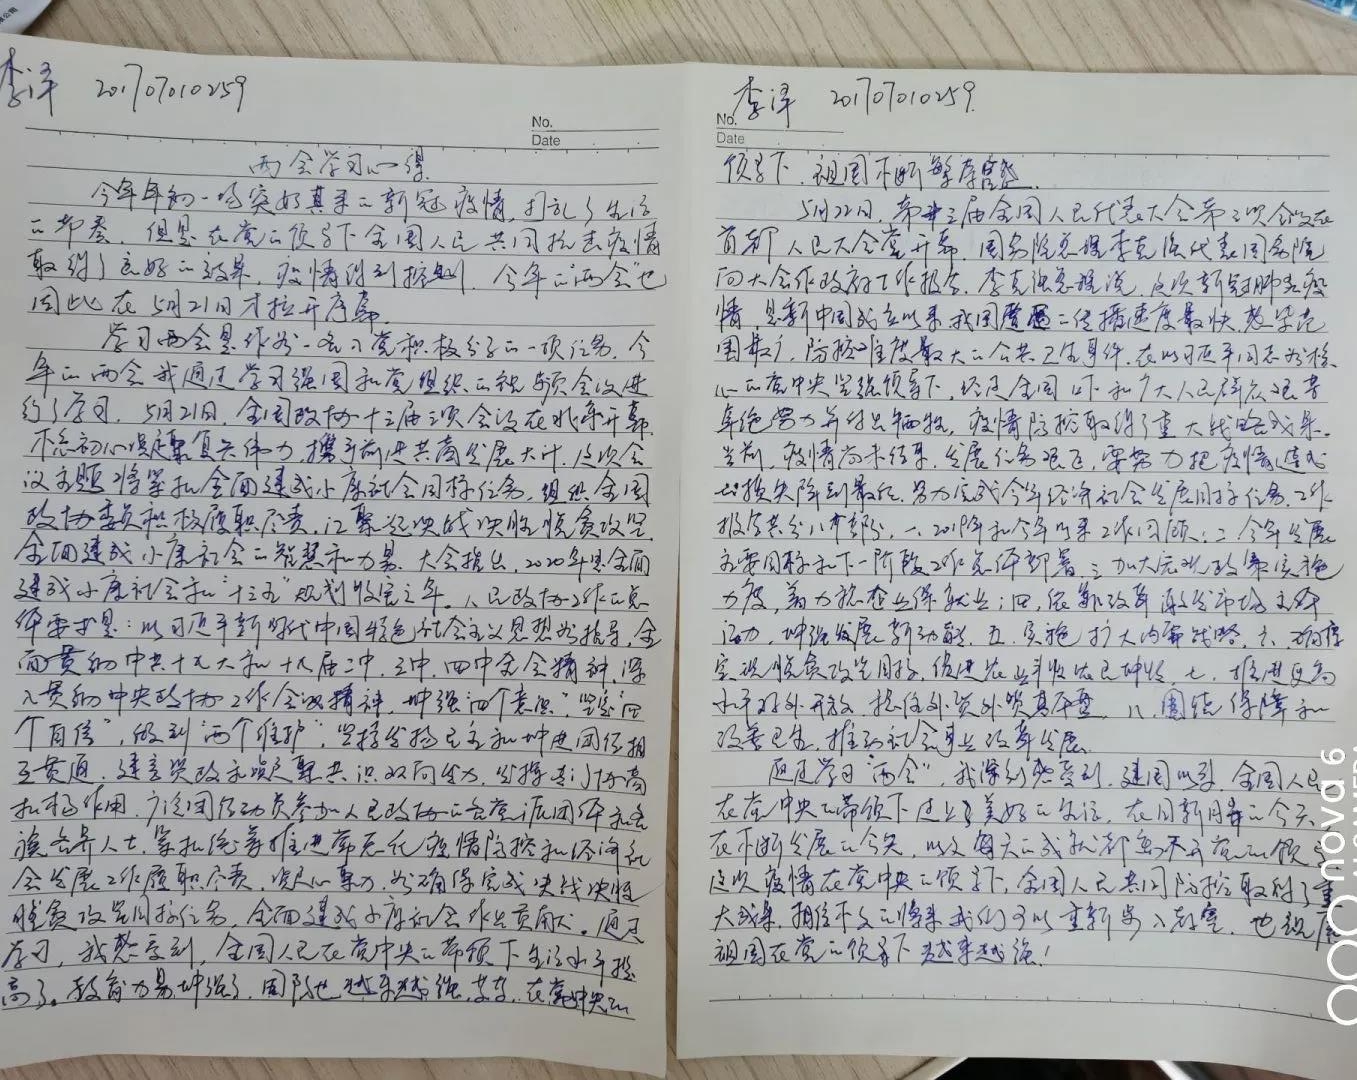 李泽 201707010259
No.
Date
两会学习心得
今年年初一场突如其来的新冠疫情,打乱了生活
的节奏,但是在党的领导下全国人民共同抗击疫情
取得了良好的效果,疫情得到控制,今年的“两会”也
因此在5月21日才拉开序幕.
学习两会是作为一名入党积极分子的一项任务,今
年的两会我通过学习强国和党组织的视频会议进
行了学习,5月21日,全国政协十三届三次会议在北京开幕
不忘初心凝聚复兴伟力,携手前进共商发展大计,这次会
议主题将紧扣全面建成小康社会目标任务,组织全国
政协委员积极履职尽责,汇聚起决战决胜脱贫攻坚
全面建成小康社会的智慧和力量.大会指出,2020年是全面
建成小康社会和“十三五”规划收官之年.人民政协工作的总
体要求是:以习近平新时代中国特色社会主义思想为指导,全
面贯彻中共十九大和十九届二中,三中,四中全会精神,深
入贯彻中央政协工作会议精神,增强“四个意识”,坚定“四
个自信”,做到“两个维护”,坚持发扬民主和增进团结相
互贯通,建言资政和凝聚共识双向发力,发挥专门协商
机构作用,广泛团结动员参加人民政协的各党派团体和各
族各界人士,紧扣统筹推进常态化疫情防控和经济社
会发展工作履职尽责,凝心聚力,为确保完成决战决胜
脱贫攻坚目标任务,全面建成小康社会作出贡献.通过
学习,我感受到,全国人民在党中央的带领下生活水平提
高了,教育力量增强了,国防也越来越强,在党中央的
李泽 201707010259
No.
Date
领导下,祖国不断繁荣富强.
5月22日,第十三届全国人民代表大会第三次会议在
首都人民大会堂开幕,国务院总理李克强代表国务院
向大会作政府工作报告,李克强总理说,这次新冠肺炎疫
情,是新中国成立以来我国遭遇的传播速度最快,感染范
围最广,防控难度最大的公共卫生事件,在以习近平同志为核
心的党中央坚强领导下,经过全国上下和广大人民群众艰苦
卓绝努力并付出牺牲,疫情防控取得了重大战略成果.
当前,疫情尚未结束,发展任务艰巨,要努力把疫情造成
的损失降到最低,努力完成今年经济社会发展目标任务.工作
报告共分八个部分,一、2019年和今年以来工作回顾;二、今年发展
主要目标和下一阶段工作总体部署;三、加大宏观政策实施
力度,着力稳企业保就业;四、依靠改革激发市场主体
活力,增强发展新动能,五、实施扩大内需战略,六、确保
实现脱贫攻坚目标,促进农业丰收农民增收,七、推进更高
水平对外开放,稳住外资外贸基本盘,八、围绕保障和
改善民生,推动社会事业改革发展.
通过学习“两会”,我深刻感受到,建国以来,全国人民
在党中央的带领下过上了美好的生活,在日新月异的今天
在不断发展的今天,以及每天的成就都离不开党的领导
这次疫情在党中央的领导下,全国人民共同防控取得了重
大成果,相信不久的将来我们可以重新步入教室,也祝愿
祖国在党的领导下越来越强!
nova 6